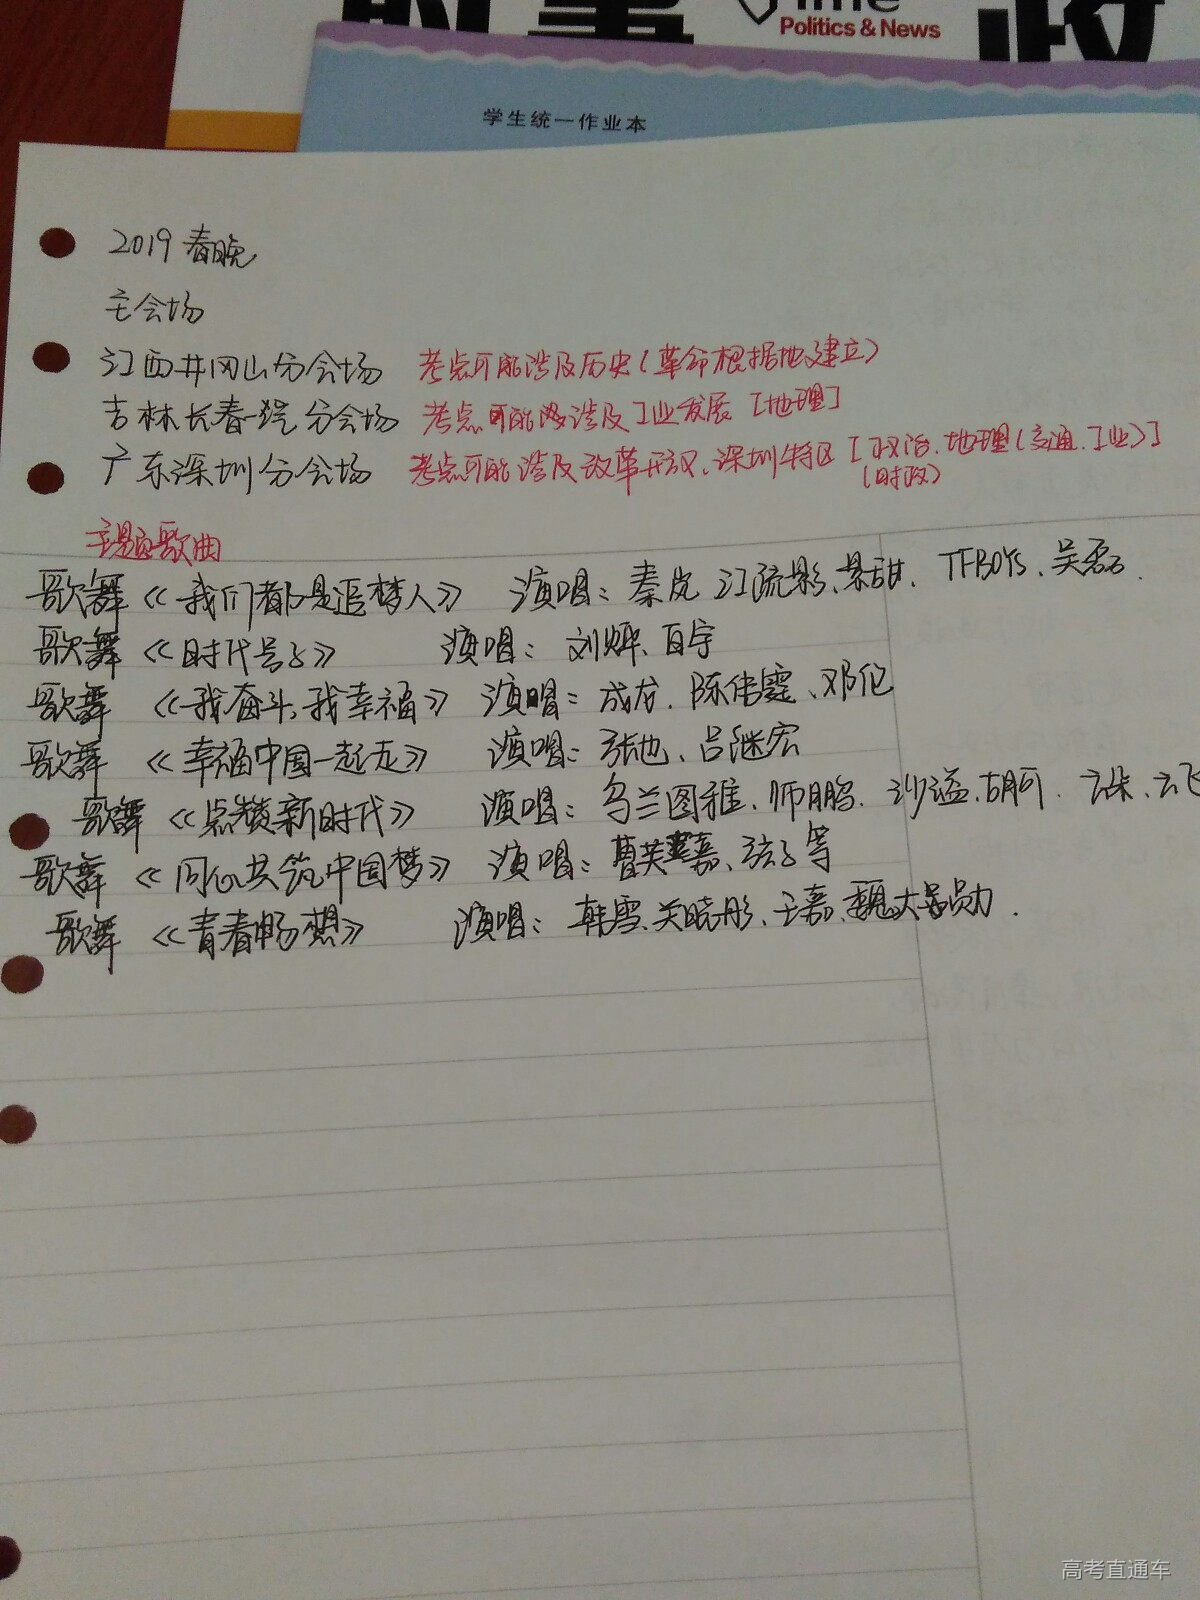 时事 Time 政
Politics & News
学生统一作业本
2019 春晚
主会场
江西井冈山分会场 考点可能涉及历史(革命根据地建立)
吉林长春一汽分会场 考点可能涉及工业发展 [地理]
广东深圳分会场 考点可能涉及改革开放、深圳特区 [政治、地理(交通、工业)]
(时政)
主题歌曲
歌舞《我们都是追梦人》 演唱:秦岚 江疏影、景甜、TFBOYS、吴磊.
歌舞《时代号子》 演唱:刘烨、白宇
歌舞 《我奋斗,我幸福》 演唱:成龙、陈伟霆、邓伦
歌舞 《幸福中国一起走》 演唱:张也、吕继宏
歌舞《点赞新时代》 演唱:乌兰图雅、师鹏、沙溢、胡可、云朵、云飞
歌舞《同心共筑中国梦》 演唱:曹芙嘉、弦子等
歌舞 《青春畅想》 演唱:韩雪、关晓彤、王嘉、魏大勋.
高考直通车